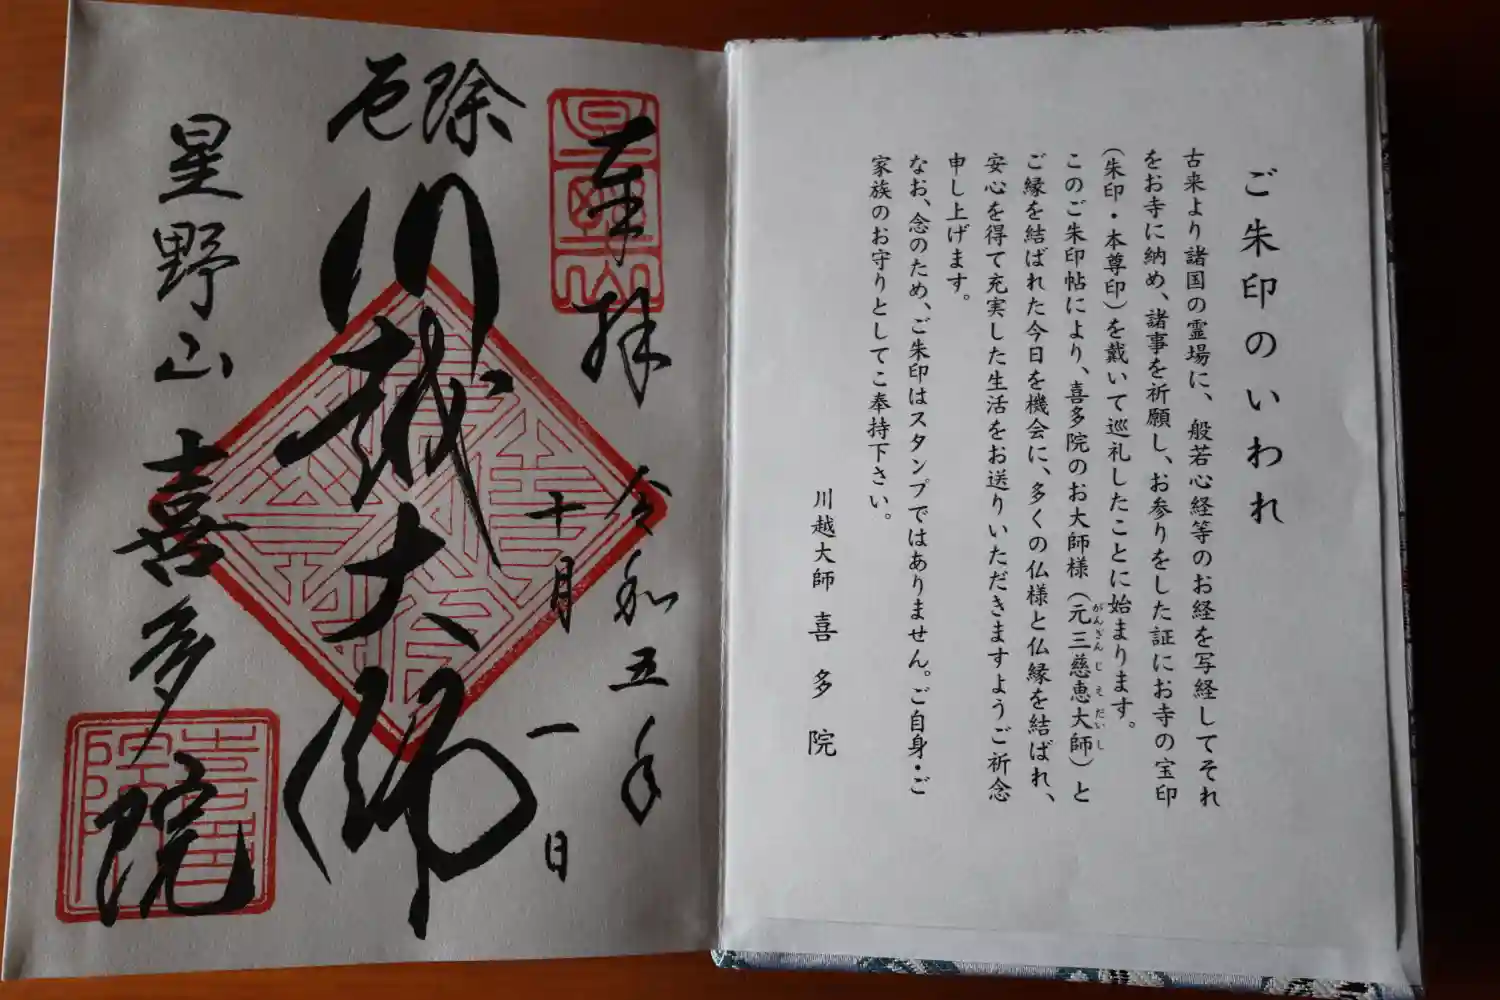 ご朱印のいわれ
古来より諸国の霊場に、般若心経等のお経を写経してそれ
をお寺に納め、諸事を祈願し、お参りをした証にお寺の宝印
(朱印・本尊印)を戴いて巡礼したことに始まります。
このご朱印帖により、喜多院のお大師様(元三慈恵大師)と
がんざんじえだいし
ご縁を結ばれた今日を機会に、多くの仏様と仏縁を結ばれ、
安心を得て充実した生活をお送りいただきますようご祈念
申し上げます。
なお、念のため、ご朱印はスタンプではありません。ご自身・ご
家族のお守りとしてご奉持下さい。
川越大師 喜多院
奉拝
令和五年
十月一日
厄除
川越大師
星野山 喜多院
喜多院